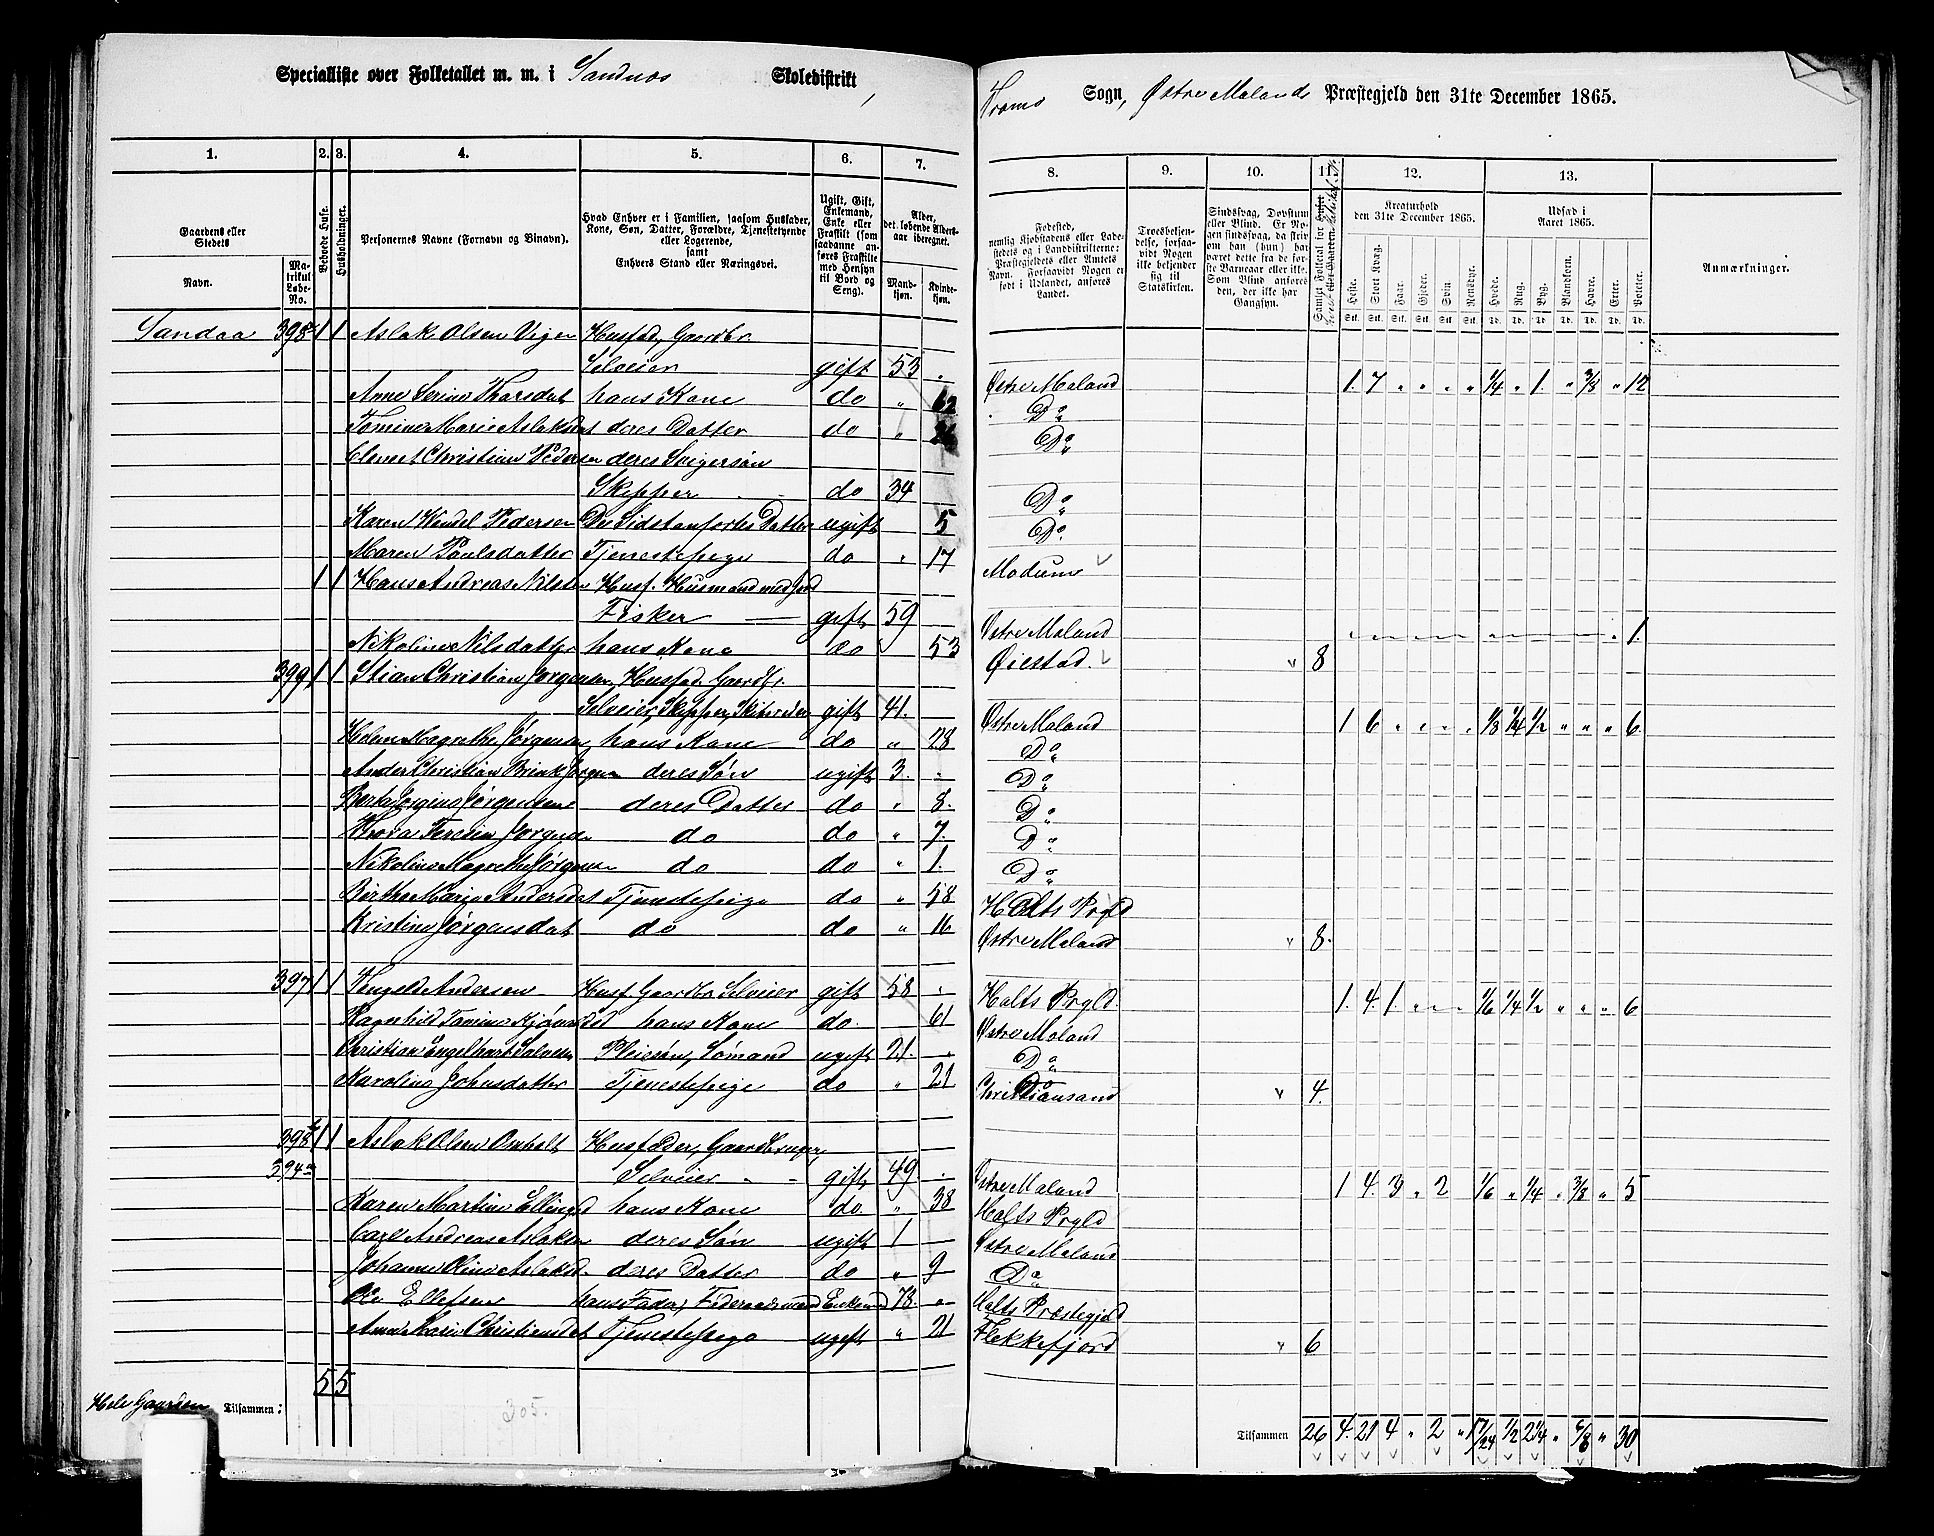 Specialliste over Folketallet m. m. i Sandnæs Skoledistrikt,
Tromø Sogn, Østre Molands Præstegjeld den 31te December 1865.
1. 2. 3. 4. 5. 6. 7. 8. 9. 10. 11. 12. 13.
Gaardens eller Stedets
Navn.
Matrikul Løbe-No.
Beboede Huse.
Husholdninger.
Personernes Navne (Fornavn og Binavn).
Hvad Enhver er i Familien, saasom Husfader, Kone, Søn, Datter, Forældre, Tjenestetyende eller Logerende, samt Enhvers Stand eller Næringsvei.
Ugift, Gift, Enkemand, Enke eller Fraskilt (som saadanne anføres Fraskilte med Hensyn til Bord og Seng).
Alder, det løbende Aldersaar iberegnet.
Mandkjøn. Kvindekjøn.
Fødested, nemlig Kjøbstadens eller Ladestedets og i Landdistrikterne: Præstegjeldets eller Amtets Navn. Forsaavidt Nogen er født i Udlandet, anføres Landet.
Troesbekjendelse, forsaavidt Nogen ikke bekjender sig til Statskirken.
Sindssvag, Døvstum eller Blind. Er Nogen sindssvag, da skrives om han (hun) har været dette fra de første Barneaar eller ikke. Som Blind anføres den, der ikke har Gangsyn.
Kreaturhold den 31te December 1865.
Heste. Stort Kvæg. Faar. Gjeder. Svin. Rensdyr.
Udsæd i Aaret 1865.
Hvede. Rug. Byg. Blandkorn. Havre. Erter. Poteter.
Anmærkninger.
Sandaa 398 1 1 Aslak Olsen Vigen Husfad, Gaardbr.
Selveier gift 53 Østre Moland 1. 7 " " " " 1/4 " 1. " 3/8 " 12
Anne Serine Tharsdat hans Kone do " 62 Do
Tomine Marie Aslaksdat deres Datter do " 26 Do
Clemet Christian Pedersen deres Svigersøn
Skipper do 34 Do
Karen Wendel Pedersen De Sidstanførtes Datter ugift 5 Do
Maren Poulsdatter Tjenestepige do " 17 Modum
1 1 Hans Andreas Nilsen Husf. Husmand med Jord
Fisker gift 59 Østre Moland 1.
Nikoline Nilsdatter hans Kone do 53 Øiestad 8
399 1 1 Stian Christian Jørgensen Husfad Gaardbr.
Selveier, Skipper, gift 41. Østre Moland 1 6 1/8 1/4 1/2 " " " 6.
Helene Magrethe Jørgensen hans Kone do " 28 Do
Ander Christian Brink Jørgen deres Søn ugift 3. Do
Berte Jørgine Jørgensen deres Datter do " 8. Do
Thora Teresie Jørgensen do do " 7. Do
Nikoline Magrethe Jørgensen do do " 1. Do
Birthe Marie Andersdat Tjenestepige do " 58 Holts Prgld
Kristine Jørgensdat do do " 16 Østre Moland 8.
397 1 1 Tengel Andersen Husf Gaardbr Selveier gift 58 Holts Prgld 1. 4. 1. 1/6 1/4 1/2 " " " 6
Ragnhild Tomine dat hans Kone do. 61 Østre Moland
Christian Engelhart Salvesen Pleiesøn, Sømand ugift 21. Do
Karoline Johnsdatter Tjenestepige do " 21 Christiansand 4.
398 1 1 Aslak Olsen Omholt Husfader, Gaardbruger,
394 Selveier gift 49. Østre Moland 1 4. 3 " 2 1/6 " 1/4 " 3/8 " 5
Karen Martine Ellingsd hans Kone do " 38 Holts Prgld
Carl Andreas Aslaksen deres Søn ugift 1 Østre Moland
Johanne Oline Aslaksd. deres Datter do " 9 Do
Ole Ellefsen hans Fader, Føderaadsmand Enkemd 78. Holts Præstegjeld
Anne Marie Christiensdat Tjenestepige ugift " 21 Flekkefjord 6
5 5
Hele Gaarden Tilsammen:
305.
Tilsammen 26 4. 21 4 " 2 " 1 17/24 1/2 2 1/4 " 6/8 " 30